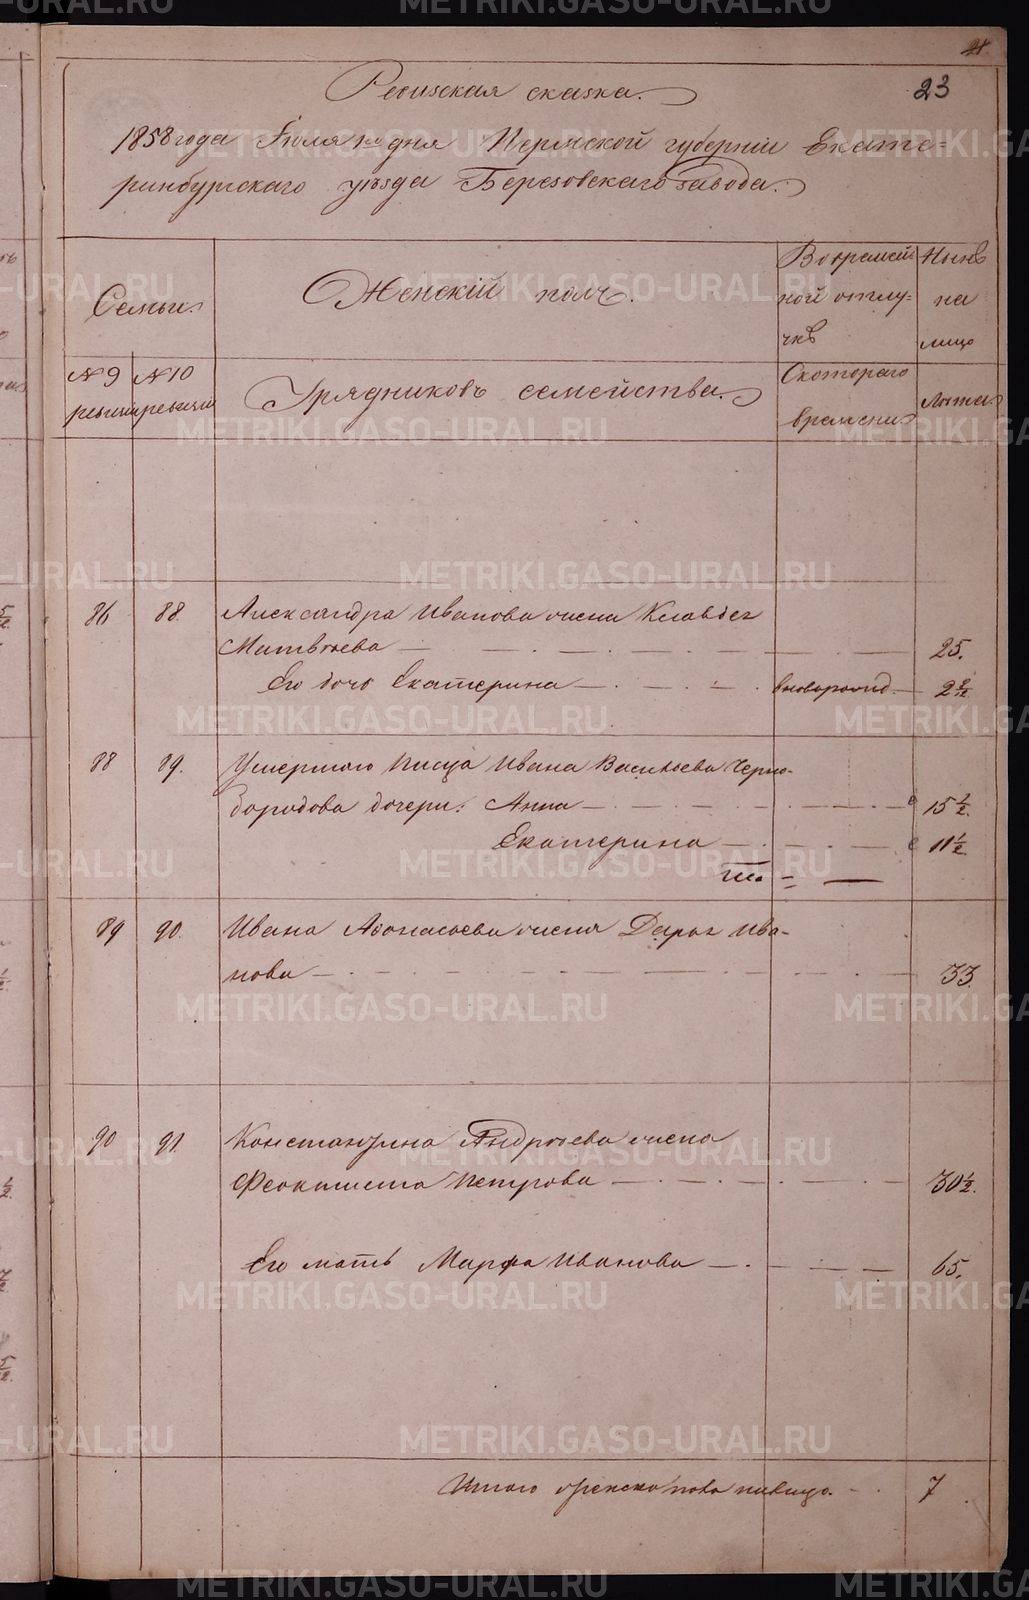 21.
23
Ревизская сказка.
1858 года Іюля 1го дня Пермской губерніи Екате=
ринбургскаго уѣзда Березовскаго завода.
Семьи.
Женскій полъ.
Во времен=
ной отлу=
чкѣ
Нынѣ
на
лицо
№ 9
ревизіи
№ 10
ревизіи
Урядниковъ семейства.
Скотораго
времени
Лѣта.
86
88.
Александра Иванова жена Клавдея
Матвѣева
25.
Его дочь Екатерина
вноворожд.
88
89.
Умершаго писца Ивана Васильева Черно-
бородова дочери: Анна
15 1/2.
Екатерина
11 1/2.
89
90.
Ивана Афонасьева жена Дарья Ива-
нова
33.
90
91.
Константина Андрѣева жена
Феоктиста Петрова
30 1/2.
Его мать Марфа Иванова
65.
Итого женска пола налицо.
7
METRIKI.GASO-URAL.RU